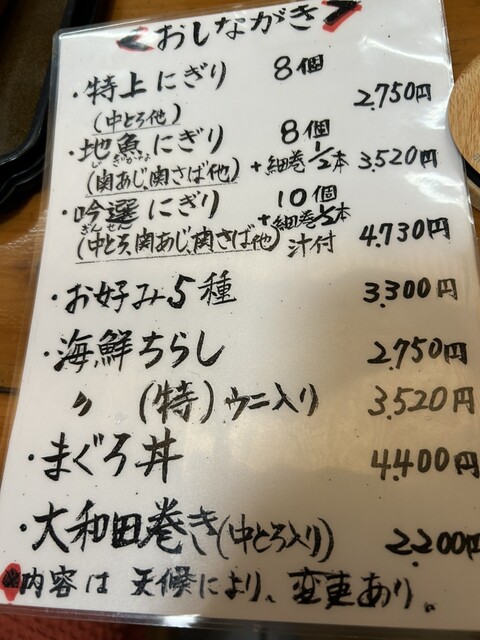 おしながき
・特上にぎり 8個 2,750円
(中とろ他)
・地魚にぎり 8個
じざかな +細巻1/2本 3,520円
(関あじ、関さば他)
・吟選にぎり 10個
ぎんせん +細巻1/2本
(中とろ、関あじ、関さば他) 汁付 4,730円
・お好み5種 3,300円
・海鮮ちらし 2,750円
〃 (特)ウニ入り 3,520円
・まぐろ丼 4,400円
・大和田巻き(中とろ入り) 2,200円
※内容は天候により、変更あり。